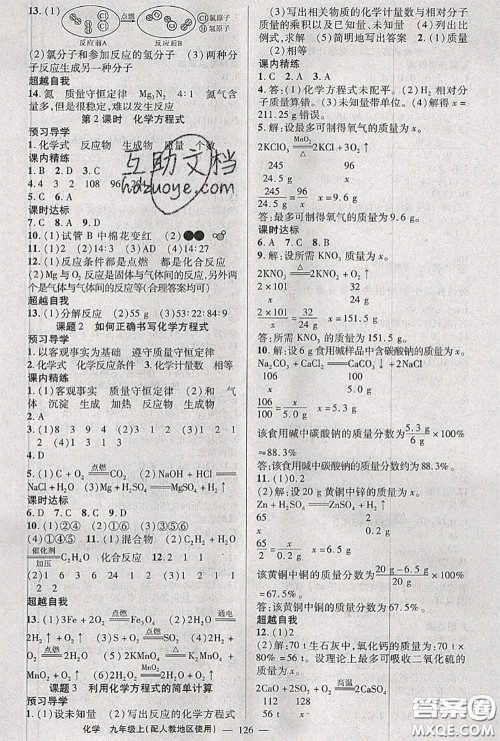 13. (1)
氯原子
氢原子
反应前A 反应后B
(2)氯分子和参加反应的氢分子 (3)两种分
子反应生成另一种分子
超越自我
14. 氮 质量守恒定律 Mg₃N₂ 4∶1 氮气含
量多,但是很稳定,难以发生反应
第2课时 化学方程式
预习导学
1. 化学式 反应物 生成物 质量 个数
课内精练
1. B 2. A 3. 4 2 108 96
4. B 5. A 6. A
课时达标
7. C 8. A 9. D
10. (1)试管B中棉花变红
11. (1)2 (2)34 (3)A (4)14∶27
12. (1)反应条件都是点燃 都是化合反应
(2)Mg与O₂反应是固体与气体间的反应,另外两
个是气体与气体间的反应等(合理答案均可)
超越自我
13. (1)分解反应 (2)55 (3)64∶89.6
课题2 如何正确书写化学方程式
预习导学
1. 以客观事实为基础 遵守质量守恒定律
2. 化学式 化学反应条件 3. 化学计量数 相等
课内精练
1. (1)客观事实 质量守恒定律 (2)和 气
体 沉淀 生成 加热 反应物 生成物
2. A
5. (1)C + O₂ 点燃 CO₂ (2)NaOH + HCl
NaCl + H₂O (3)Mg + H₂SO₄ MgSO₄ + H₂↑
课时达标
6. D 7. B 8. C 9. D
10. (1)②④ (2)①⑥ (3)③⑤⑥
催化剂
加压
C₂H₆O 化合反应 12. 2 1 1
超越自我
13. (1)3Fe + 2O₂ 点燃 Fe₃O₄ (2)2H₂O 通电
2H₂↑ + O₂↑ (3)S + O₂ 点燃 SO₂ (4)2H₂O₂
MnO₂ 2H₂O + O₂↑ (5)2KMnO₄ △ K₂MnO₄ +
MnO₂ + O₂↑ (6)2H₂ + O₂ 点燃 2H₂O
课题3 利用化学方程式的简单计算
预习导学
1. (1)设未知量 (2)写出反应的化学方程式
(3)写出相关物质的化学计量数与相对分子
质量的乘积以及已知量、未知量 (4)列出比
例式,求解 (5)简明地写出答案 2. (1)质量
(2)相等
课内精练
1. C 2. A 3. C
4. 答:(1)化学方程式未配平。(2)H₂ 相对分
子质量算错。(3)未知量带单位。(4)x =
211.25 g 错误。
5. 解:设最多可制得氧气的质量为x。
2KClO₃ MnO₂ △ 2KCl + 3O₂↑
245 96
24.5 g x
245/24.5 g = 96/x x = 9.6 g
答:最多可制得氧气的质量为9.6 g。
课时达标
6. A 7. B 8. C
9. 解:设所需KNO₃ 质量为x。
2KNO₃ △ 2KNO₂ + O₂↑
2×101 32
x 24 g
2×101/x = 32/24 g x = 151.5 g
答:所需KNO₃ 的质量为151.5 g。
10. 解:设6 g食用碱样品中含碳酸钠的质量为x。
Na₂CO₃ + CaCl₂ CaCO₃↓ + 2NaCl
106 100
x 5.0 g
106/100 = x/5.0 g x = 5.3 g
该食用碱中碳酸钠的质量分数为 5.3 g/6 g × 100%
≈ 88.3%
答:该食用碱中碳酸钠的质量分数约为88.3%。
11. (1)0.2
(2)解:设20 g黄铜中锌的质量为x。
Zn + H₂SO₄ ZnSO₄ + H₂↑
65 2
x 0.2 g
65/x = 2/0.2 g x = 6.5 g
该黄铜中铜的质量分数为 20 g − 6.5 g/20 g × 100%
= 67.5%
答:该黄铜中铜的质量分数为67.5%。
超越自我
12. (1)2
(2)解:70 t生石灰中,氧化钙的质量为70 t
× 80% = 56 t
设理论上最多可吸收二氧化硫的
质量为x。
2CaO + 2SO₂ + O₂ 高温 2CaSO₄
112 128
56 t x
化学 九年级上(配人教地区使用) — 126 —
互助文档
hdzuoye.com
答案圈
MXQE.COM